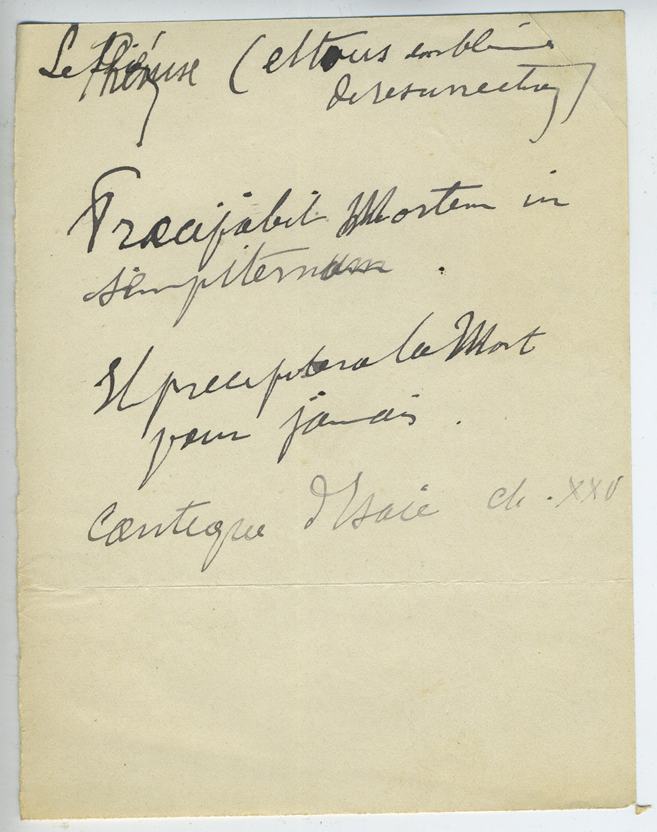 Le (et tous emblème
de resurrection)
Præcipabit Mortem in
sempiternum.
Il precipitera la Mort
pour jamais.
Cantique d'Esaie ch. XXV